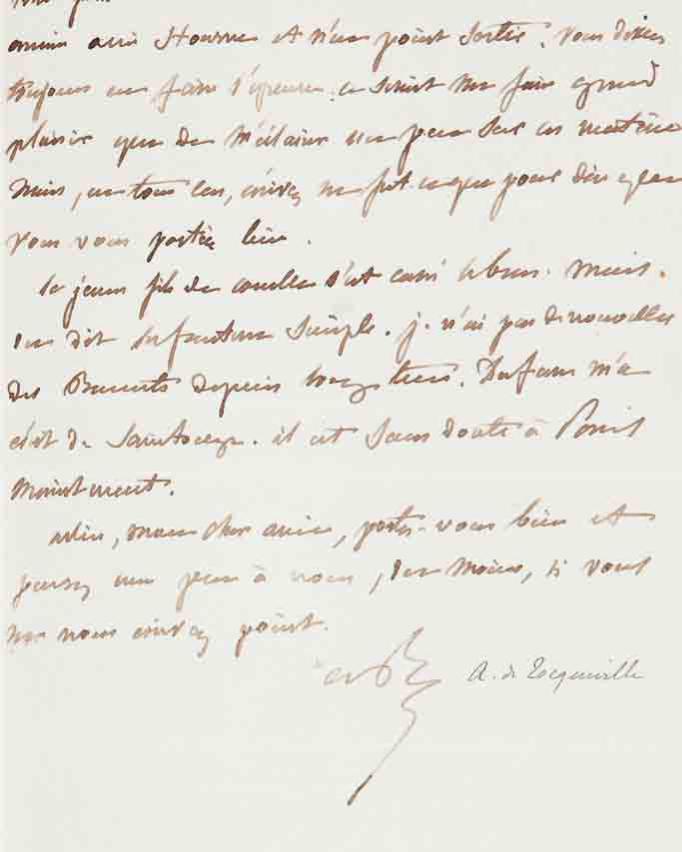 point sortie. Vous devriez
toujours en faire l'épreuve. ce serait me faire grand
plaisir que de m'éclairer un peu sur ces matières
mais, en tous cas, écrivez ne fut-ce que pour dire que
vous vous portez bien.
le jeune fils de s'est cassé le bras. mais.
on dit la fracture simple. je n'ai pas de nouvelles
des depuis longtems. Dufaure m'a
écrit de Saintonge. il est sans doute à Paris
maintenant.
adieu, mon cher ami, portez-vous bien et
pensez un peu à nous, du moins, si vous
ne nous écrivez point.
A. de Tocqueville